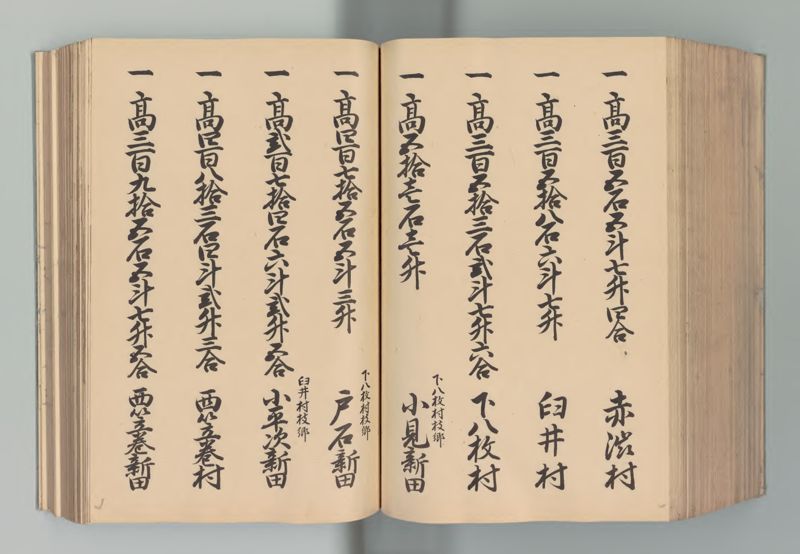 一高三百五石五斗七升四合 赤渋村
一高三百五拾八石六斗七升 臼井村
一高三百五拾三石弐斗七升六合 下八枚村
下八枚村枝郷
一高五拾壱石壱升 小見新田
下八枚村枝郷
一高四百七拾五石五斗三升 戸石新田
臼井村枝郷
一高弐百七拾四石六斗弐升五合 小平次新田
一高四百八拾三石四斗弐升三合 西笠巻村
一高三百九拾五石五斗七升五合 西笠巻新田